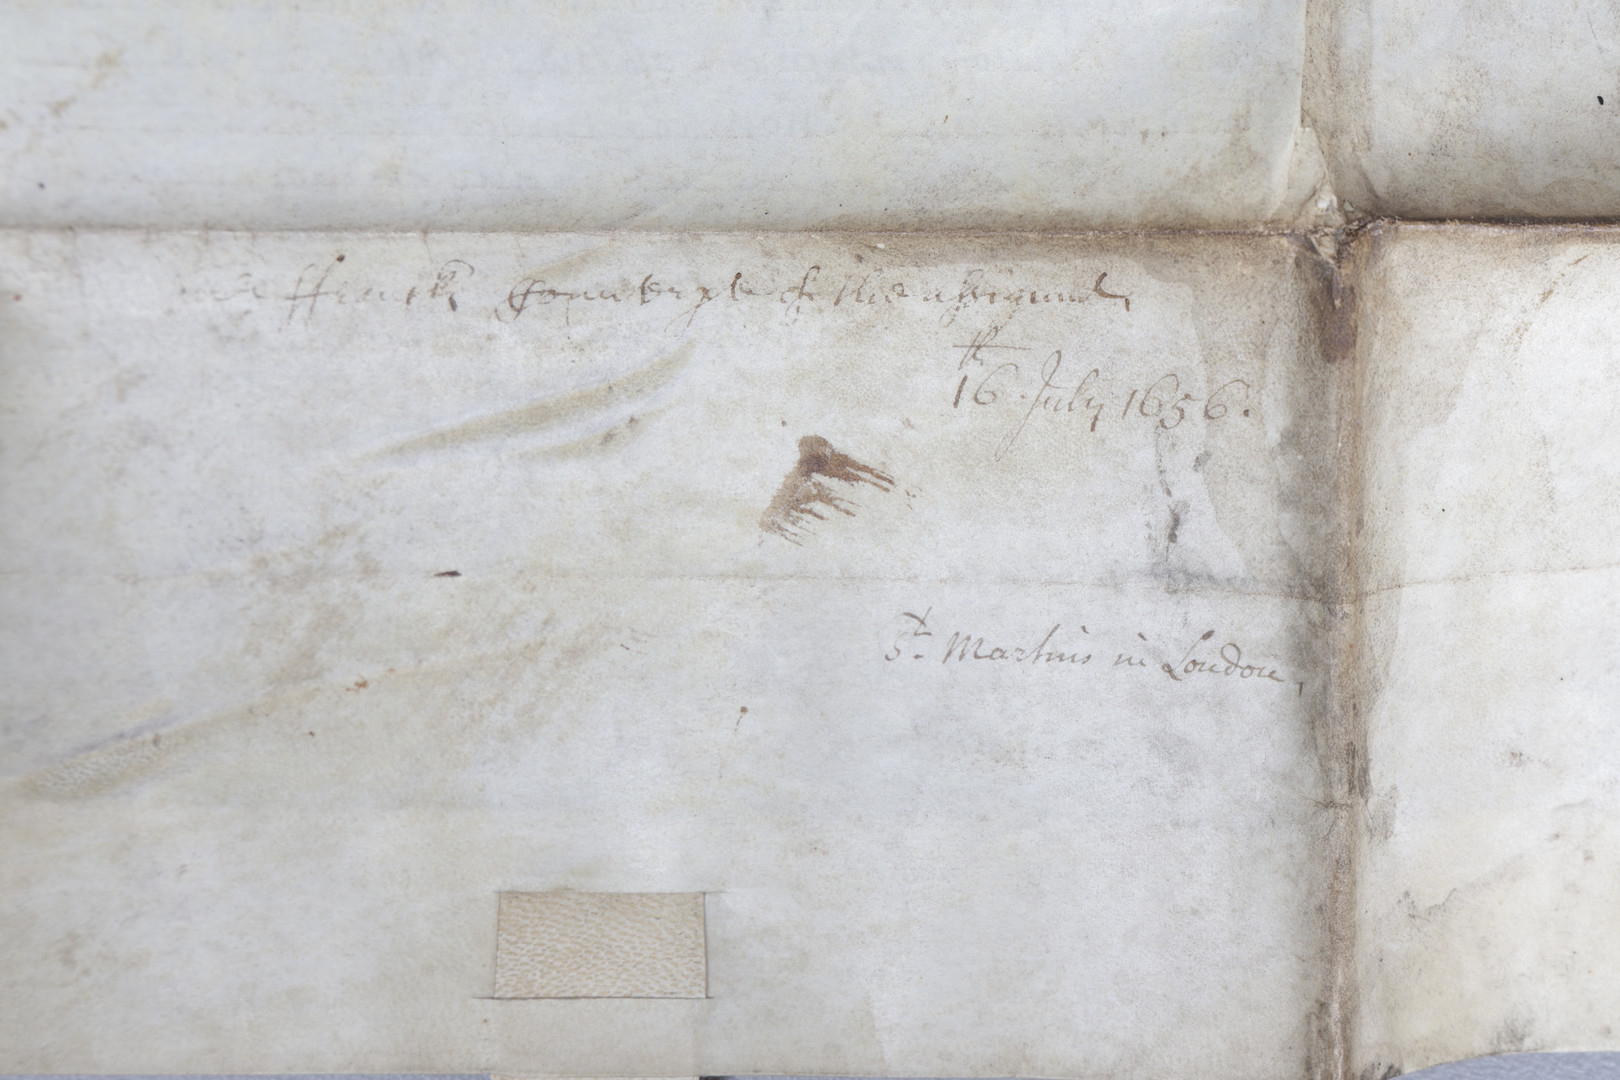 ffrench Counterpte of the assignmt
16th July 1656.
St. Martins in London,